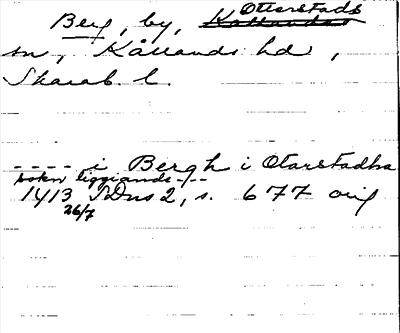 Berg, by, Otterstads
sn, Kållands hd,
Skarab. l.
---- i Bergh i Otarstadha
sokn liggiande ---
1413 26/7 SDns 2, s. 677 orig